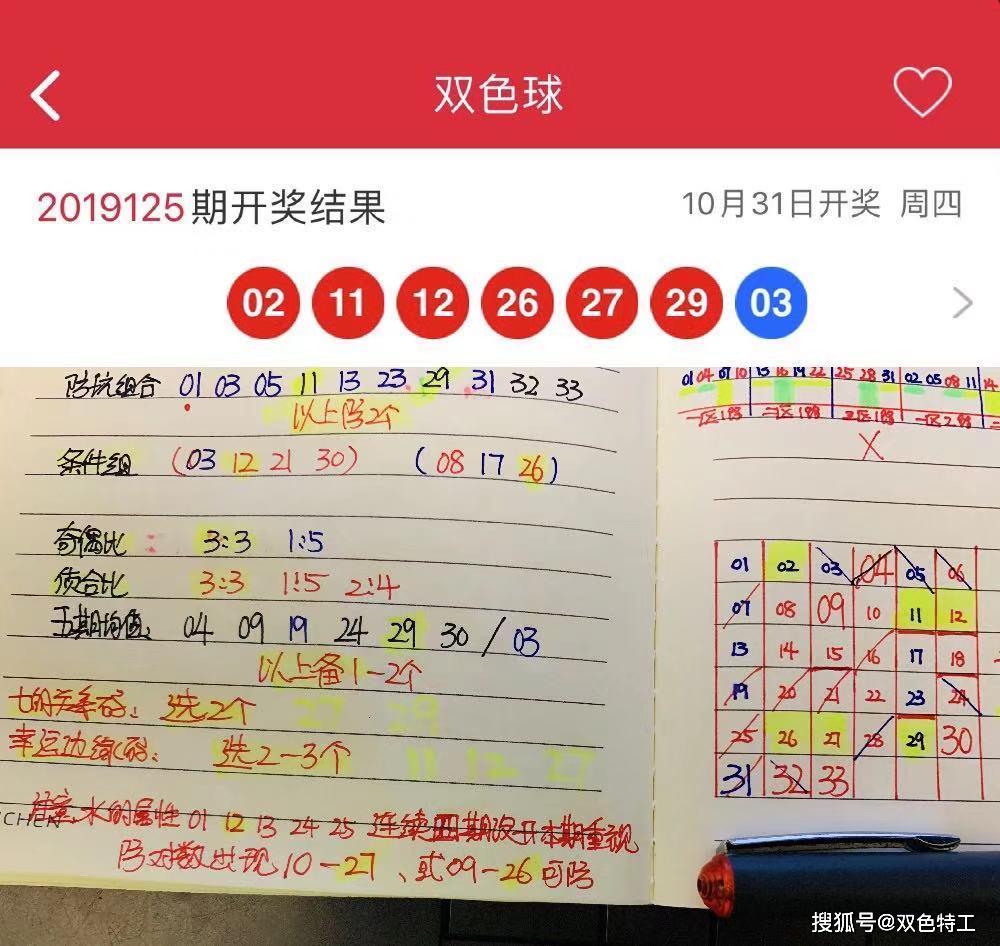 双色球
2019125期开奖结果 10月31日开奖 周四
02 11 12 26 27 29 03
防坑组合 01 03 05 11 13 23 29 31 32 33
以上防2个
条件组 (03 12 21 30) (08 17 26)
奇偶比: 3:3 1:5
质合比 3:3 1:5 2:4
五期均值: 04 09 19 24 29 30 / 03
以上备1-2个
七的关系码: 选2个 27 29
幸运边缘码: 选2-3个 11 12 27
水的属性 01 12 13 24 25 连续四期没开本期重视
防对数出现10-27、或09-26可防
01 04 07 10 13 16 19 22 25 28 31 02 05 08 11 14
一区1路 二区1路 三区1路 一区2路
X
01 02 03 04 05 06
07 08 09 10 11 12
13 14 15 16 17 18
19 20 21 22 23 24
25 26 27 28 29 30
31 32 33
搜狐号@双色特工